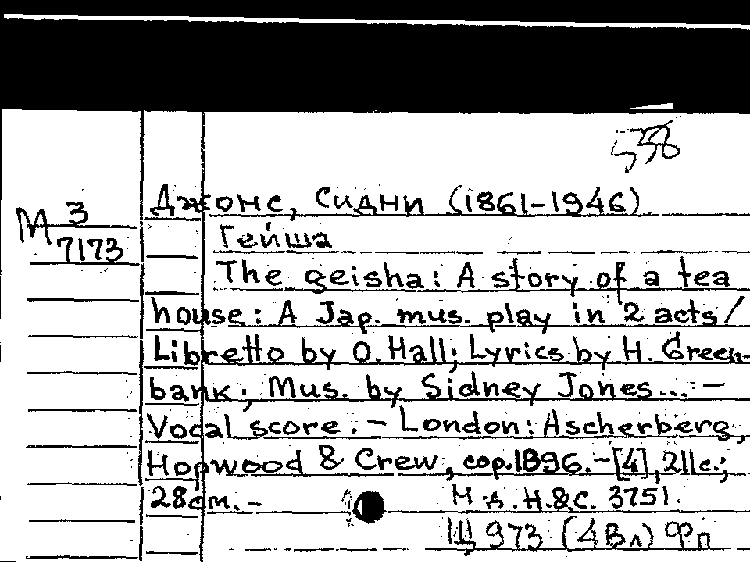 538
Джонс, Сидни (1861-1946)
М 3
7173
Гейша
The geisha: A story of a tea
house: A Jap. mus. play in 2 acts/
Libretto by O. Hall; Lyrics by H. Green-
bank; Mus. by Sidney Jones...: -
Vocal score. - London: Ascherberg,
Hopwood & Crew, cop.1896.-[4],211c.;
28cm. -
Н.д. H.&C. 3751.
Щ 973 (4Вл) Фп